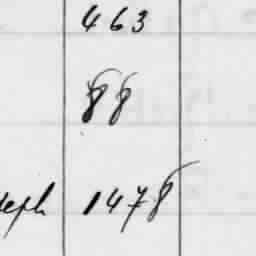 463
88
eph 1478